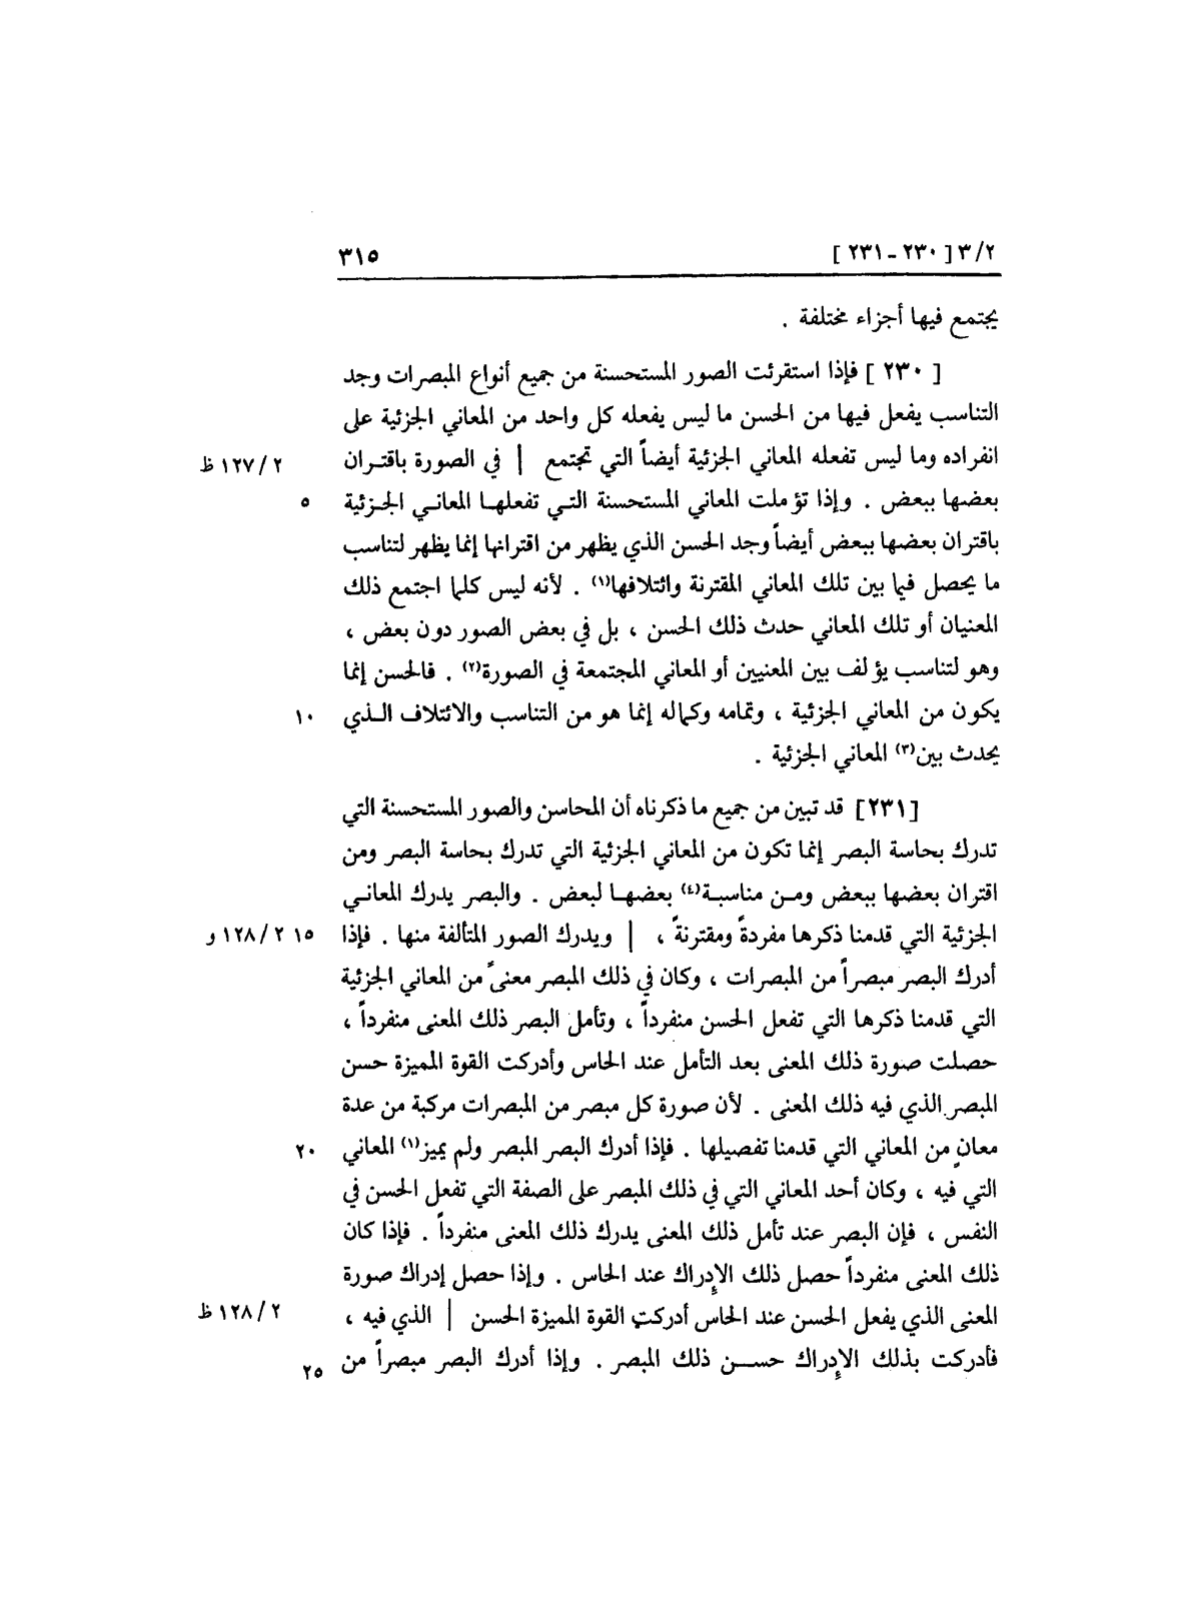 ٣/٢ [ ٢٣٠ - ٢٣١ ] ٣١٥
يجتمع فيها أجزاء مختلفة .
[ ٢٣٠ ] فإذا استقرئت الصور المستحسنة من جميع أنواع المبصرات وجد
التناسب يفعل فيها من الحسن ما ليس يفعله كل واحد من المعاني الجزئية على
انفراده وما ليس تفعله المعاني الجزئية أيضاً التي تجتمع | في الصورة باقتـران ٢ /١٢٧ ظ
بعضها ببعض . وإذا تؤملت المعاني المستحسنة التـي تفعلهـا المعانـي الجـزئية ٥
باقتران بعضها ببعض أيضاً وجد الحسن الذي يظهر من اقترانها إنما يظهر لتناسب
ما يحصل فيما بين تلك المعاني المقترنة وائتلافها(١) . لأنه ليس كلما اجتمع ذلك
المعنيان أو تلك المعاني حدث ذلك الحسن ، بل في بعض الصور دون بعض ،
وهو لتناسب يؤلف بين المعنيين أو المعاني المجتمعة في الصورة(٢) . فالحسن إنما
يكون من المعاني الجزئية ، وتمامه وكماله إنما هو من التناسب والائتلاف الـذي ١٠
يحدث بين(٣) المعاني الجزئية .
[٢٣١] قد تبين من جميع ما ذكرناه أن المحاسن والصور المستحسنة التي
تدرك بحاسة البصر إنما تكون من المعاني الجزئية التي تدرك بحاسة البصر ومن
اقتران بعضها ببعض ومـن مناسبـة(٤) بعضهـا لبعض . والبصر يدرك المعانـي
الجزئية التي قدمنا ذكرها مفردةً ومقترنةً ، | ويدرك الصور المتألفة منها . فإذا ١٥ ٢ /١٢٨ و
أدرك البصر مبصراً من المبصرات ، وكان في ذلك المبصر معنىً من المعاني الجزئية
التي قدمنا ذكرها التي تفعل الحسن منفرداً ، وتأمل البصر ذلك المعنى منفرداً ،
حصلت صورة ذلك المعنى بعد التأمل عند الحاس وأدركت القوة المميزة حسن
المبصر الذي فيه ذلك المعنى . لأن صورة كل مبصر من المبصرات مركبة من عدة
معانٍ من المعاني التي قدمنا تفصيلها . فإذا أدرك البصر المبصر ولم يميز(١) المعاني ٢٠
التي فيه ، وكان أحد المعاني التي في ذلك المبصر على الصفة التي تفعل الحسن في
النفس ، فإن البصر عند تأمل ذلك المعنى يدرك ذلك المعنى منفرداً . فإذا كان
ذلك المعنى منفرداً حصل ذلك الإدراك عند الحاس . وإذا حصل إدراك صورة
المعنى الذي يفعل الحسن عند الحاس أدركت القوة المميزة الحسن | الذي فيه ، ٢ /١٢٨ ظ
فأدركت بذلك الإدراك حســن ذلك المبصر . وإذا أدرك البصر مبصراً من ٢٥